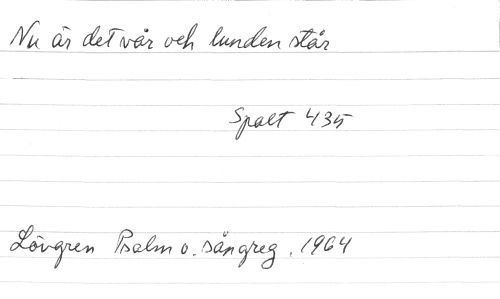 Nu är det vår och lunden står
Spalt 435
Lövgren Psalm o. sångreg. 1964